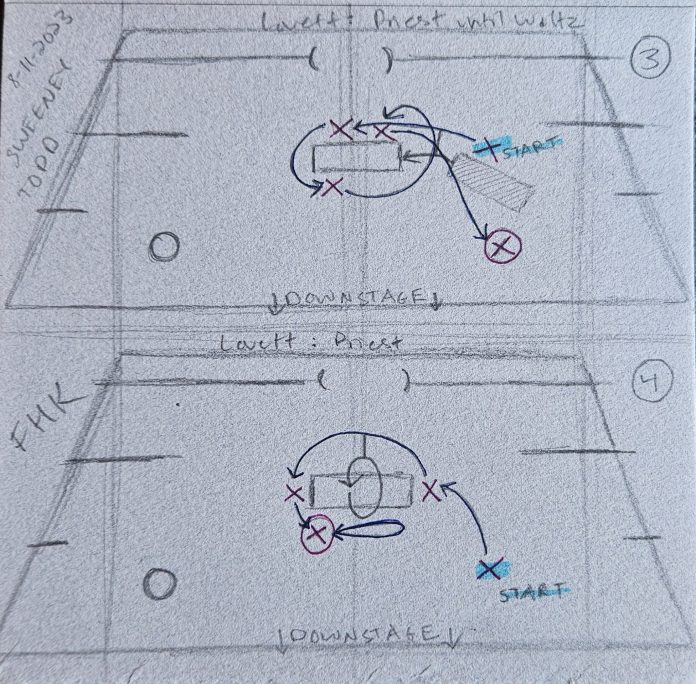 Lovett: Priest until Waltz
3
8-11-2023
SWEENEY
TODD
START
↓DOWNSTAGE↓
Lovett: Priest
4
FHK
START
↓DOWNSTAGE↓